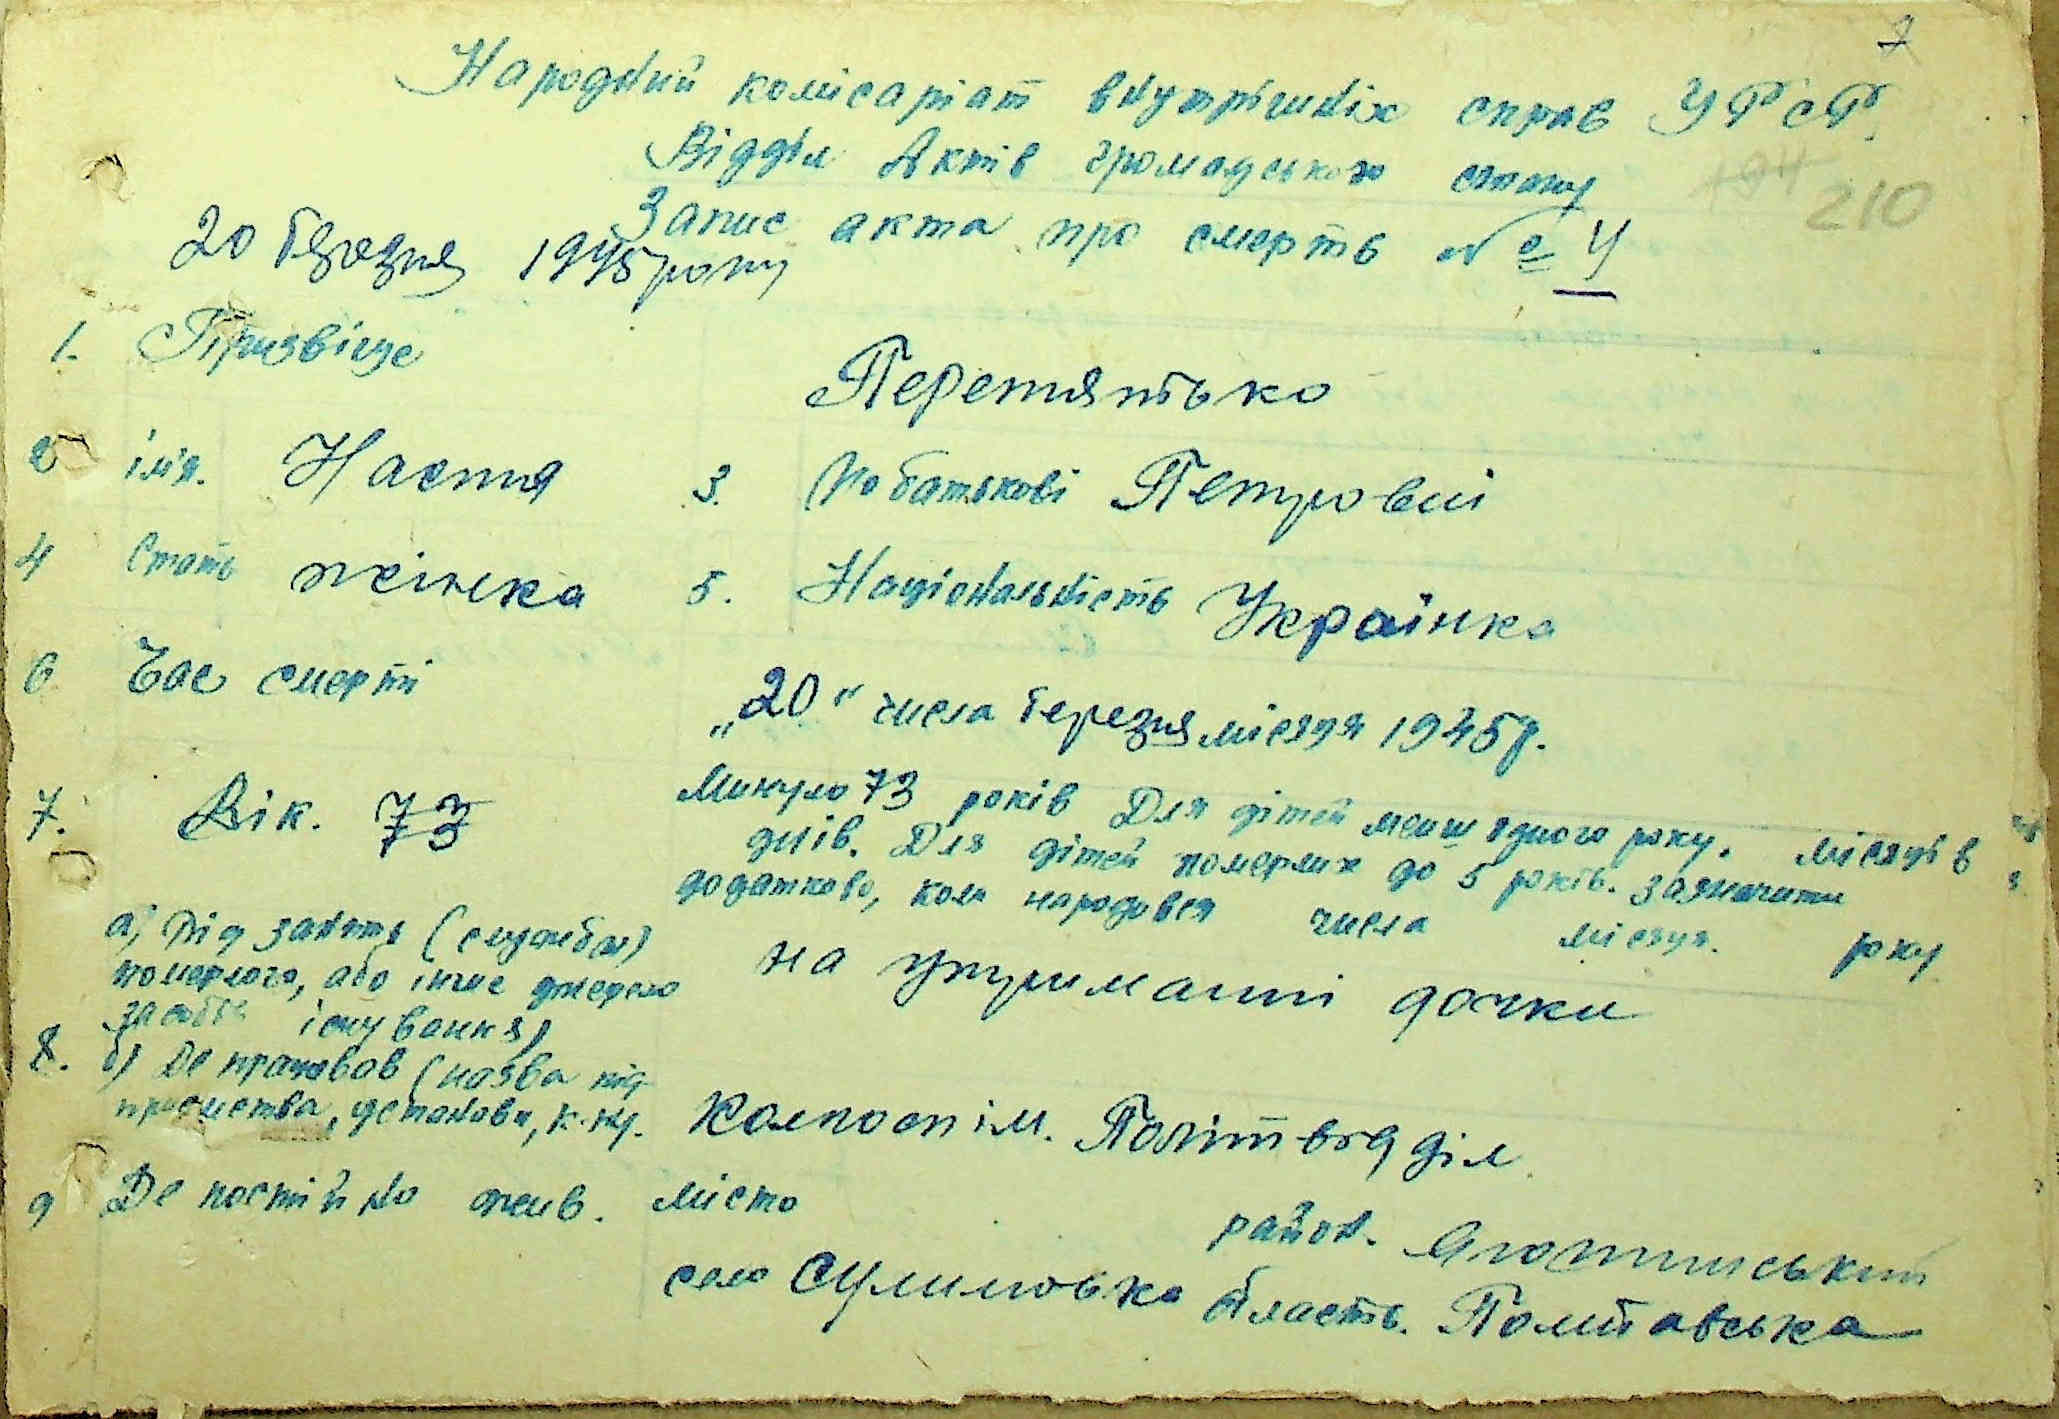 Народний комісаріат внутрішніх справ УРСР.
Відділ Актів громадського стану
194 210
Запис акта про смерть № 4
20 березня 1945 року
1. Призвіще Перетятько
2 ім'я. Настя 3. По батькові Петровні
4 Стать жінка 5. Національність Українка
6 Час смерті „20“ числа березня місяця 1945 р.
7. Вік. 73 Минуло 73 років Для дітей менш одного року, місяців
днів. Для дітей померлих до 5 років. зазначити
додатково, коли народився числа місяця. року
а) Рід занять (службы)
померлого, або інше джерело
засобів існування) на утриманні дочки
8. б) Де працював (назва під-
приємства, установи, к-ку. Колгосп ім. Політвідділ
9 Де постійно жив. місто район. Яготинський
село Сулимовка область. Полтавська